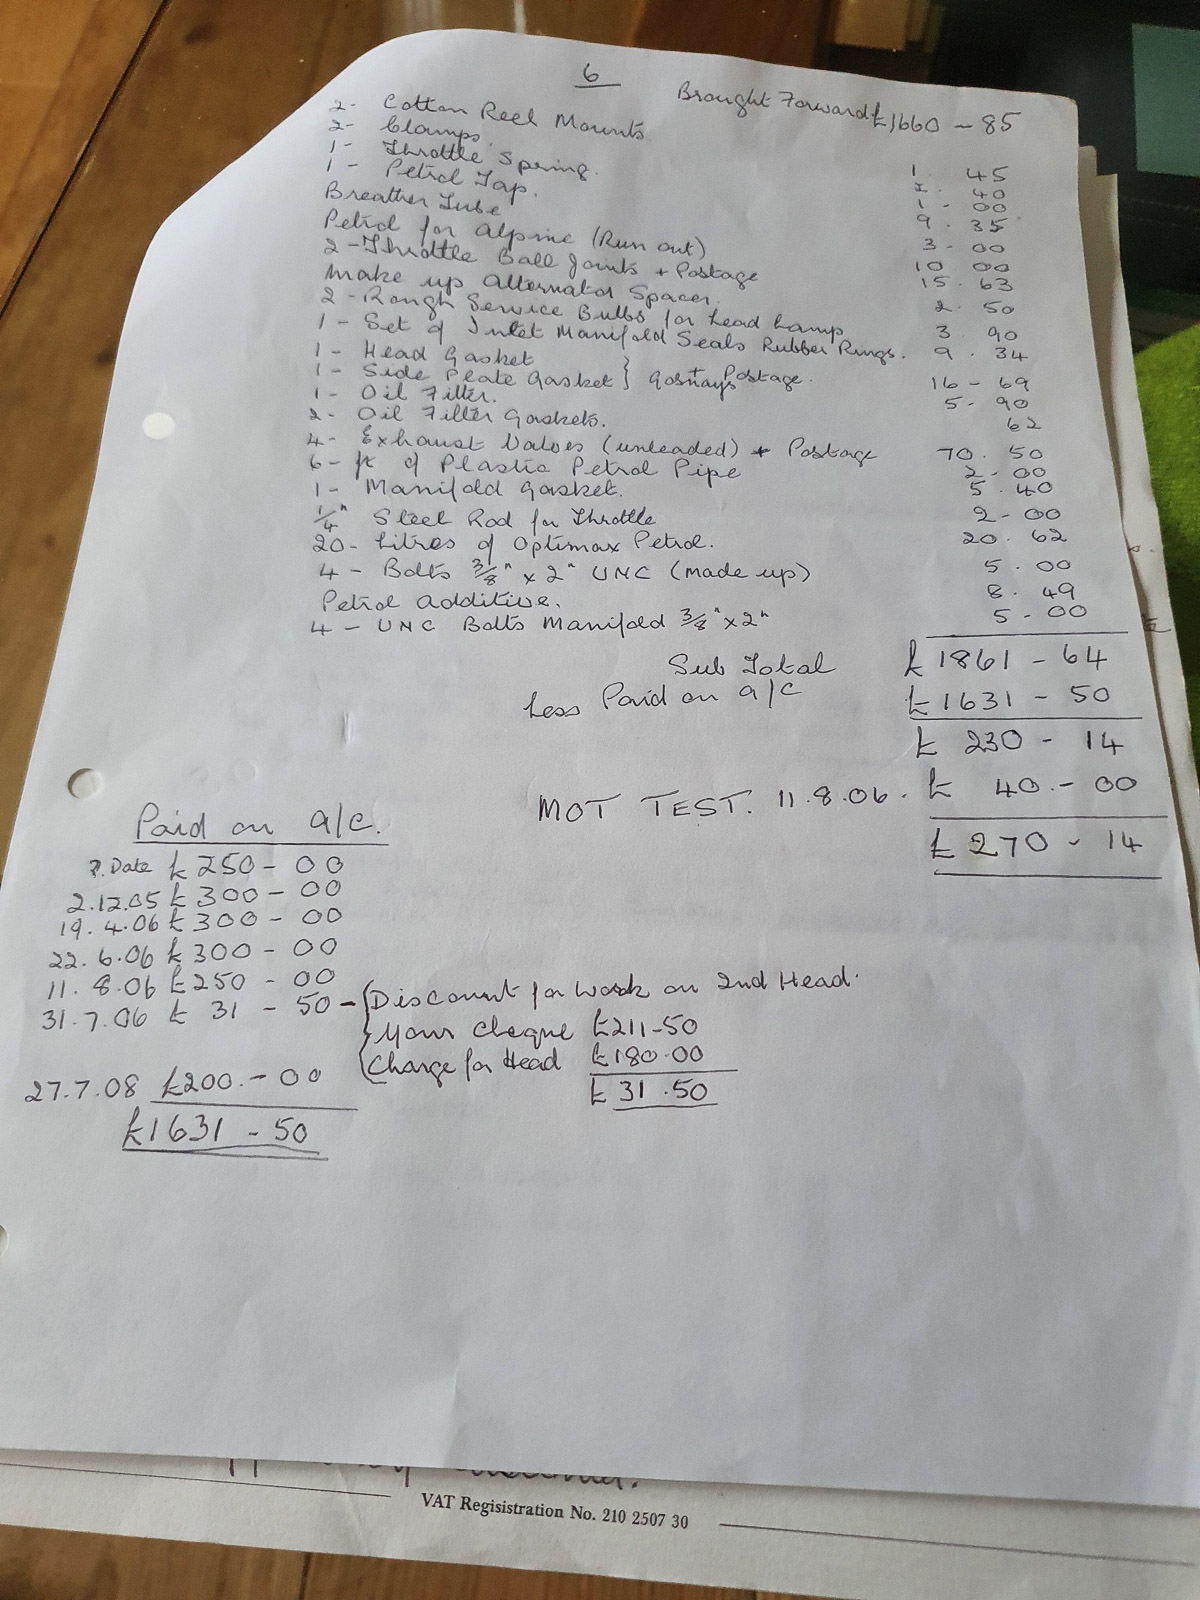 6
Brought Forward £1660 - 85
2 - Cotton Reel Mounts 1. 45
2 - Clamps 1. 40
1 - Throttle Spring. 1 - 00
1 - Petrol Tap. 9. 35
Breather Tube 3 - 00
Petrol for Alpine (Run out) 10 00
2 - Throttle Ball Joints + Postage 15. 63
Make up Alternator Spacer. 2. 50
2 - Rough Service Bulbs for Head Lamp 3 90
1 - Set of Inlet Manifold Seals Rubber Rings. 9. 34
1 - Head Gasket
1 - Side Plate Gasket } Gosnays + Postage. 16 - 69
1 - Oil Filter. 5. 90
2 - Oil Filter Gaskets. 62
4 - Exhaust Valves (unleaded) + Postage 70. 50
6 - ft of Plastic Petrol Pipe 2 - 00
1 - Manifold Gasket. 5. 40
1/4" Steel Rod for Throttle 2 - 00
20 - Litres of Optimax Petrol. 20. 62
4 - Bolts 3/8" x 2" UNC (Made up) 5. 00
Petrol Additive. 8. 49
4 - UNC Bolts Manifold 3/8" x 2" 5 - 00
Sub Total £1861 - 64
Less Paid on a/c £1631 - 50
£ 230 - 14
MOT TEST. 11.8.06. £ 40. - 00
£270 - 14
Paid on a/c.
?. Date £250 - 00
2.12.05 £300 - 00
19.4.06 £300 - 00
22.6.06 £300 - 00
11.8.06 £250 - 00
31.7.06 £ 31 - 50 - { Discount for work on 2nd Head.
Your Cheque £211-50
Charge for Head £180.00
£31.50
27.7.08 £200. - 00
£1631 - 50
VAT Regisistration No. 210 2507 30